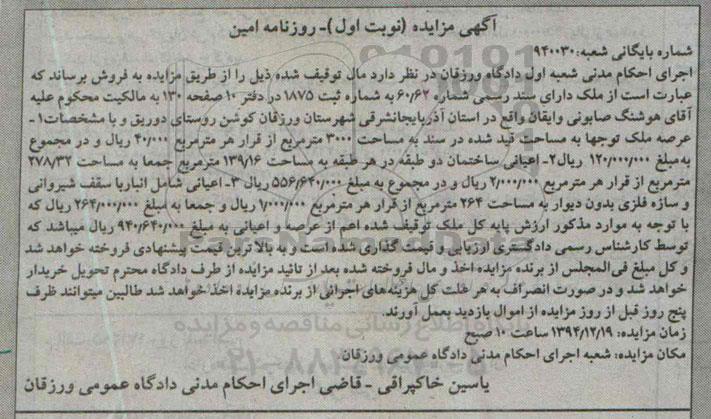 آگهی مزایده (نوبت اول)- روزنامه امین
شماره بایگانی شعبه: ۹۴۰۰۳۰
اجرای احکام مدنی شعبه اول دادگاه ورزقان در نظر دارد مال توقیف شده ذیل را از طریق مزایده به فروش برساند که
عبارت است از ملک دارای سند رسمی شماره ۶۰/۶۲ به شماره ثبت ۱۸۷۵ در دفتر ۱۰ صفحه ۱۳۰ به مالکیت محکوم علیه
آقای هوشنگ صابونی وایقان واقع در استان آذربایجانشرقی شهرستان ورزقان کوشن روستای دوریق و با مشخصات ۱-
عرصه ملک توجها به مساحت قید شده در سند به مساحت ۳۰۰۰ مترمربع از قرار هر مترمربع ۴۰/۰۰۰ ریال و در مجموع
به مبلغ ۱۲۰/۰۰۰/۰۰۰ ریال۲- اعیانی ساختمان دو طبقه در هر طبقه به مساحت ۱۳۹/۱۶ مترمربع جمعا به مساحت ۲۷۸/۳۲
مترمربع از قرار هر مترمربع ۲/۰۰۰/۰۰۰ ریال و در مجموع به مبلغ ۵۵۶/۶۴۰/۰۰۰ ریال ۳- اعیانی شامل انباربا سقف شیروانی
و سازه فلزی بدون دیوار به مساحت ۲۶۴ مترمربع از قرار هر مترمربع ۱/۰۰۰/۰۰۰ ریال و جمعا به مبلغ ۲۶۴/۰۰۰/۰۰۰ ریال که
با توجه به موارد مذکور ارزش پایه کل ملک توقیف شده اعم از عرصه و اعیانی به مبلغ ۹۴۰/۶۴۰/۰۰۰ ریال میباشد که
توسط کارشناس رسمی دادگستری ارزیابی و قیمت گذاری شده است و به بالاترین قیمت پیشنهادی فروخته خواهد شد
و کل مبلغ فی المجلس از برنده مزایده اخذ و مال فروخته شده بعد از تائید مزایده از طرف دادگاه محترم تحویل خریدار
خواهد شد و در صورت انصراف به هر علت کل هزینه های اجرائی از برنده مزایده اخذ خواهد شد طالبین میتوانند ظرف
پنج روز قبل از روز مزایده از اموال بازدید بعمل آورند.
زمان مزایده: ۱۳۹۴/۱۲/۱۹ ساعت ۱۰ صبح
مکان مزایده: شعبه اجرای احکام مدنی دادگاه عمومی ورزقان
یاسین خاکپرافی - قاضی اجرای احکام مدنی دادگاه عمومی ورزقان